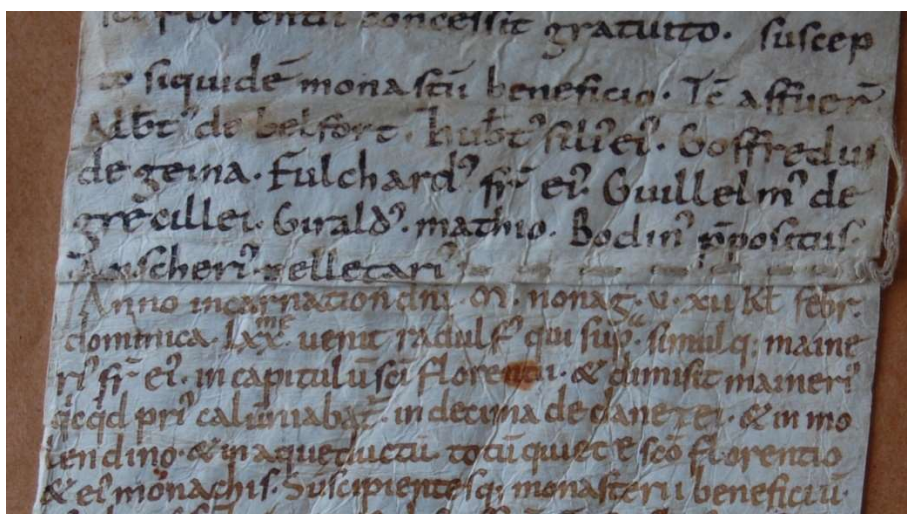 sci florentii concessit gratuito. suscep
to siquidē monastii beneficio. Tc̄ affuer̄
Albt᷒ de belfort. hubt᷒ filiꝰ eiꝰ. Goffredus
de geina. Fulchardꝰ fr̄ eiꝰ. Guillelmꝰ de
grecillei. Giraldꝰ. mathio. Bodinꝰ p̄positus.
scherꝰ. pelletariꝰ
Anno incarnation dn̄i. M. nonag. v. xii kl̄ febr̄.
dominica. lxx.me uenit radulfꝰ qui sup̄. simulq; maine
riꝰ fr̄ eiꝰ. in capitulū sc̄i florentii. & dimisit maineriꝰ
qcqd priꝰ calūniabat̄ in decima de danezei. & in mo
lendino. & in aqueductū. totū quiete sc̄o florentio
& eiꝰ monachis. Suscipientesq; monasterii beneficiū.